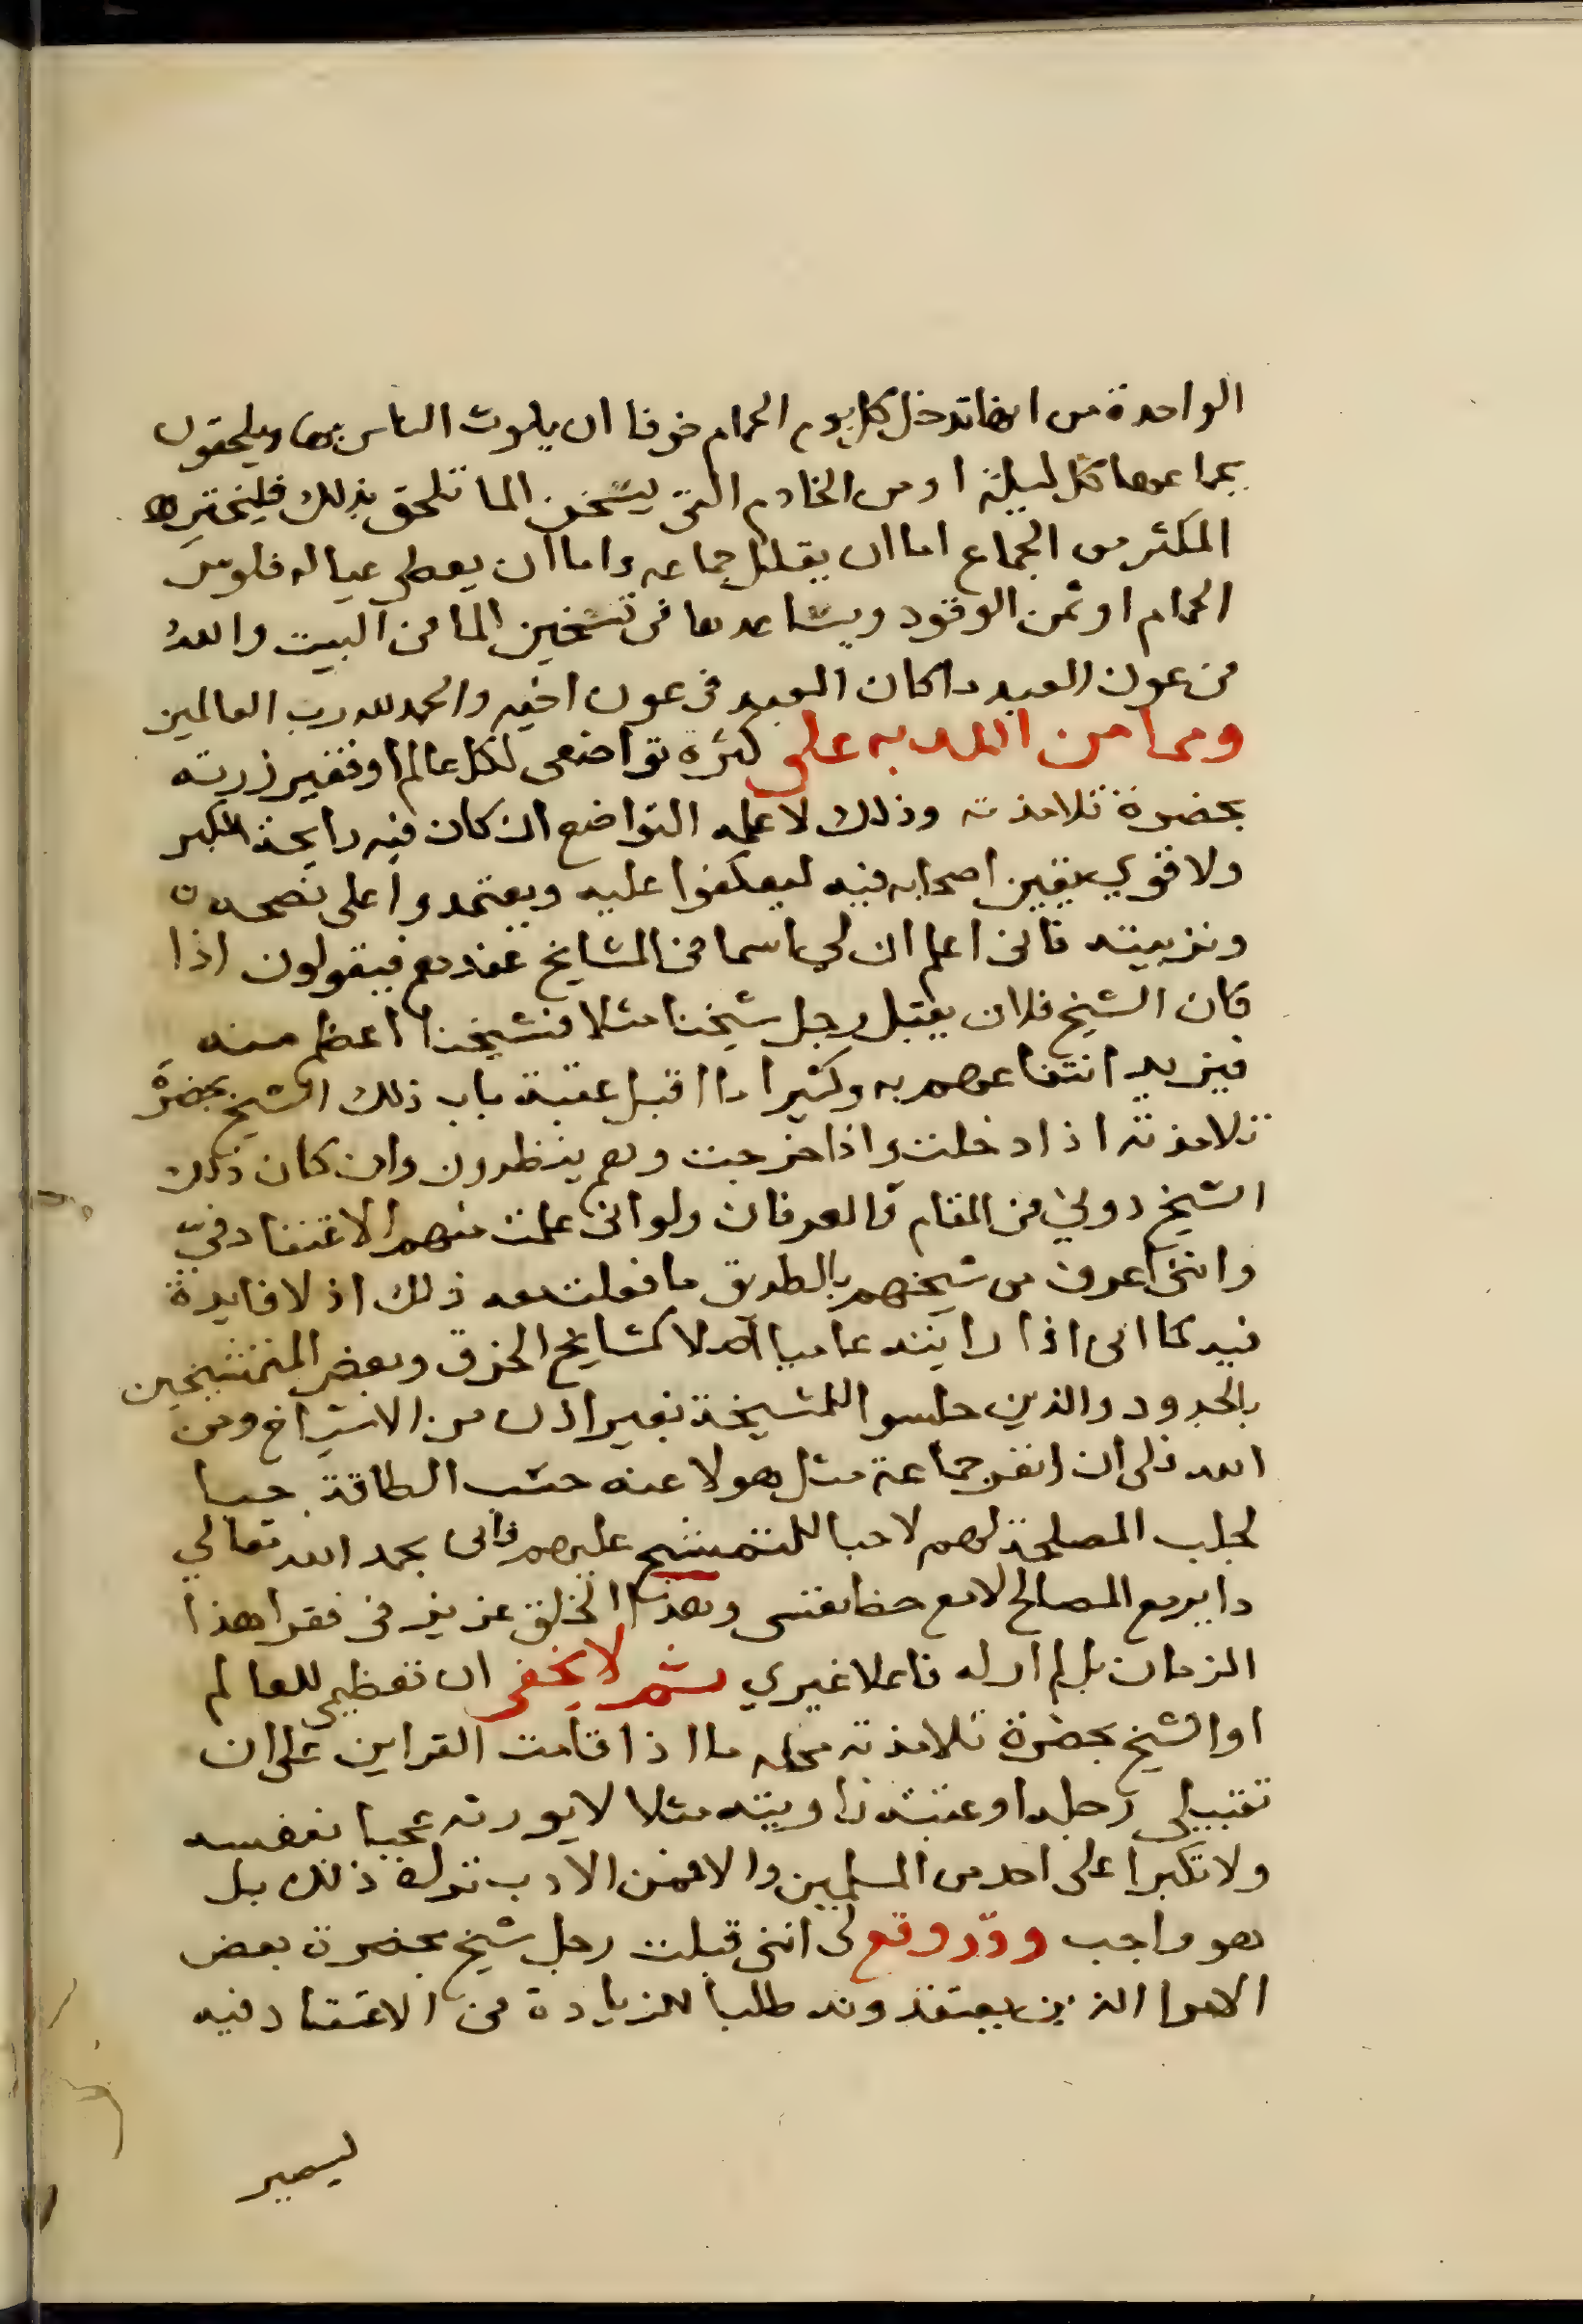 الواحدة من انها تدخل كل يوم الحمام خوفا ان يلوث الناس بها ويلحقون
بجماعها كل ليلة او من الخادم التى يسخن الما تلحق بذلك
المكثر من الجماع اما ان يقلل جماعه واما ان يعطى عياله فلوس
الحمام او ثمن الوقود ويساعدها فى تسخين الما فى البيت والله
فى عون العبد ما كان العبد فى عون اخيه والحمد لله رب العالمين
ومما من الله به على كثرة تواضعى لكل عالم او فقير زرته
بحضرة تلامذته وذلك لاعلمه التواضع ان كان فيه رايحة الكبر
ولاقوي يقين اصحابه فيه ليعكفوا عليه ويعتمدوا على نصحه
وتربيته فانى اعلم ان لى اسما فى المشايخ عندهم فيقولون اذا
كان الشيخ فلان يقبل رجل شيخنا مثلا فشيخنا اعظم منه
فيزيد انتفاعهم به وكثيرا ما اقبل عتبة باب ذلك الشيخ بحضرة
تلامذته اذا دخلت واذا خرجت وهم ينظرون وان كان ذلك
الشيخ دونى فى المقام والعرفان ولو انى علمت منهم الاعتقاد فيّ
واننى اعرف من شيخهم بالطريق ما فعلت معه ذلك اذ لا فايدة
فيه كما انى اذا رايته عاميا اهلا كمشايخ الخرق وبعض المتمشيخين
بالجدود والذين جلسوا للمشيخة بغير اذن من الاشياخ ومن
الله فلى ان انفر جماعة مثل هولا عنه حسب الطاقة حبا
لجلب المصلحة لهم لا حبا للتمشيخ عليهم فانى بحمد الله تعالي
داير مع المصالح لا مع حظ نفسى وهذا الخلق عزيز فى فقرا هذا
الزمان بل لم ار له فاعلا غيري ثم لا يخفى ان تعظيمى للعالم
او الشيخ بحضرة تلامذته محله ما اذا قامت القراين على ان
تقبيلى رجله او عتبة زاويته مثلا لا يورثه عجبا بنفسه
ولا تكبرا على احد من المسلمين والا فمن الادب ترك ذلك بل
هو واجب وقد وقع لى اننى قبلت رجل شيخ بحضرة بعض
الامرا الذين يعتقدونه طلبا للزيادة فى الاعتقاد فيه
ليصير